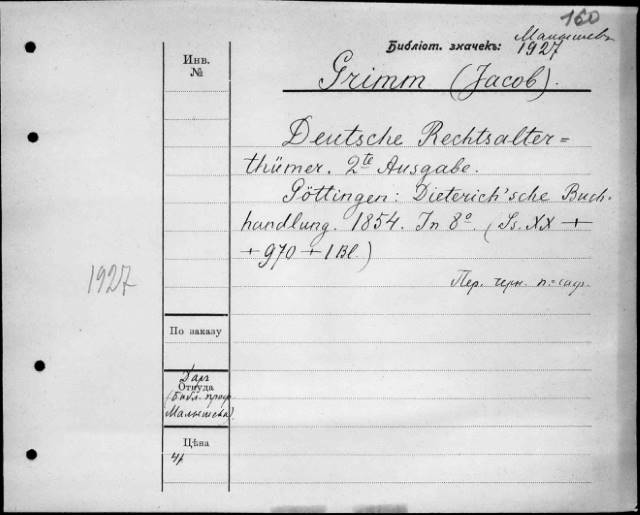 160
Малышев
Библіот. значекъ: 1927
Инв.
№
Grimm (Jacob).
Deutsche Rechtsalter=
thümer. 2te Ausgabe.
Göttingen: Dieterich'sche Buch-
handlung. 1854. In 8º. (Ss. XX +
+ 970 + 1 Bl.)
1927
Пер. черн. п=саф.
По заказу
Даръ
Откуда
(Библ. проф.
Малышева).
Цѣна
4р